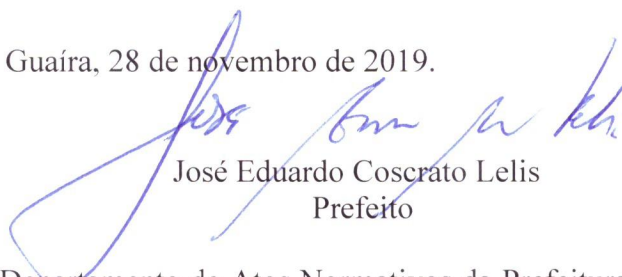 Guaíra, 28 de novembro de 2019.
José Eduardo Coscrato Lelis
Prefeito
Departamento de Atos Normativos da Prefeitura